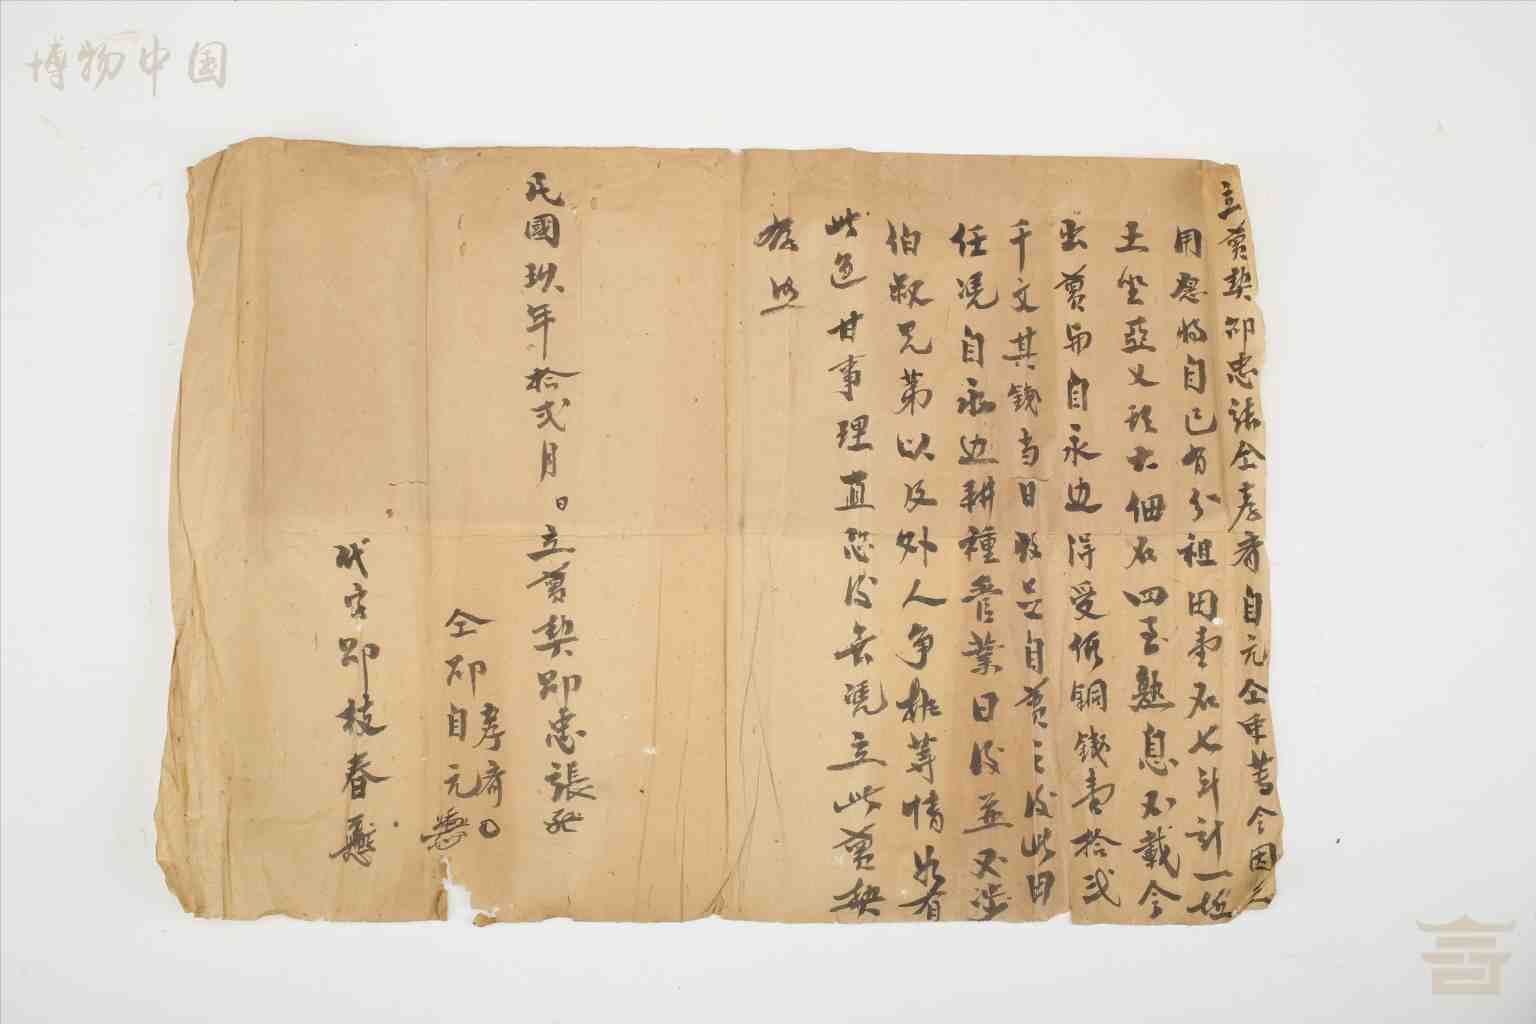 博物中国
立剪契邵忠張仝孝齊自元仝申等今因乏
用應將自己有分祖田壹石七斗計一坵
土坐亞义坵大佃石四至熟息不載今
出剪與自永边得受價銅錢壹拾弍
千文其錢当日收足自剪之後此田
任凭自永边耕種管業日後並不涉
伯叔兄第以及外人争執等情如有
此色甘事理直恐後無凴立此剪契
存照
民國玖年拾弍月日立剪契邵忠張
仝邵孝齊自元
代字邵枝春